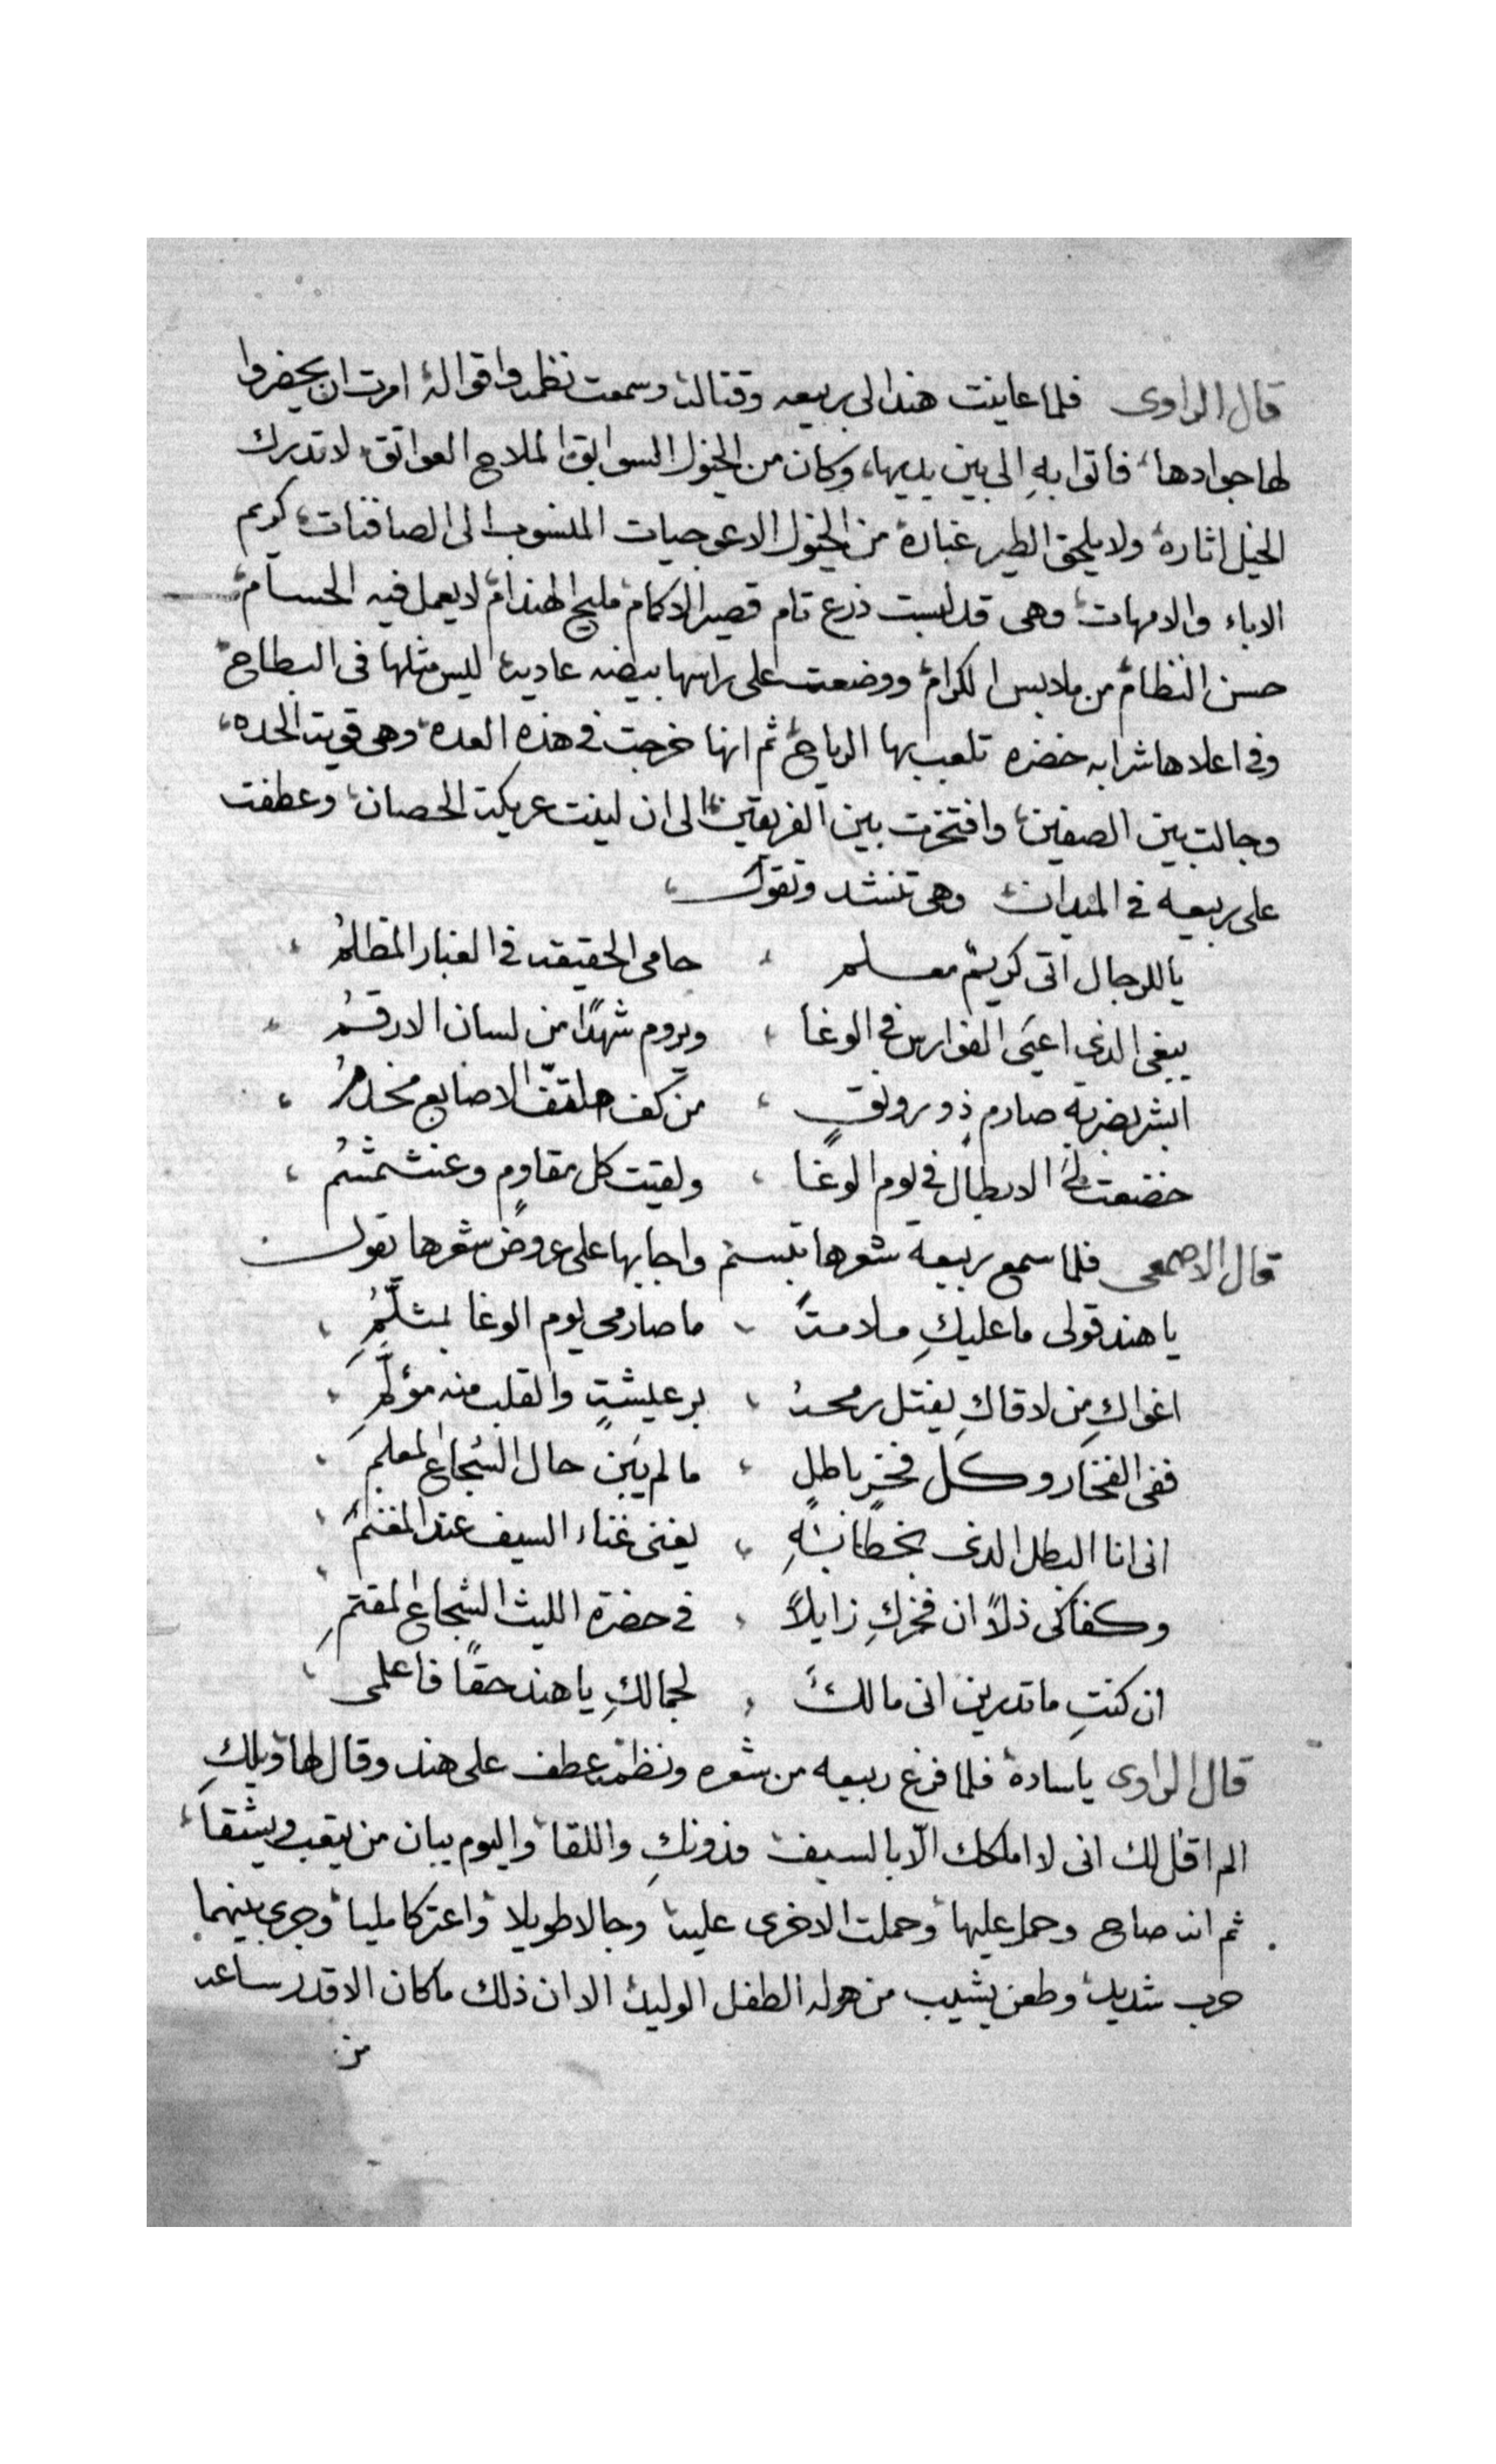 قال الراوى فلما عاينت هند الى ربيعه وقتاله وسمعت نظمه واقواله امرت ان يحضروا
لها جوادها، فاتوا بهِ الى بين يديها، وكان من الخيول السوابق الملاح العواتق لا تدرك
الخيل اثاره ولا يلحق الطير غباره من الخيول الاعوجيات المنسوب الى الصافنات، كريم
الاباء والامهات وهى قد لبست ذرع تام قصير الاكمام مليح الهندام لا يعمل فيه الحسام
حسن النظام من ملابس الكرام ووضعت على راسها بيضه عاديه ليس مثلها فى البطاح
وفى اعلاها شرابه خضره تلعب بها الرياح ثم انها خرجت فى هذهِ العده وهى قويت الحده،
وجالت بين الصفين وافتخرت بين الفريقين الى ان لينت عريكت الحصان وعطفت
على ربيعه فى الميدان وهى تنشد وتقول،
يا للرجال اتى كريم معسلم ، حامى الحقيقه فى الغبار المظلمُ ،
يبغى الذى اعيَى الفوارس فى الوغا ، ويروم شهدًا من لسان الارقمُ ،
ابشر بضربة صارمٍ ذو رونقٍ ، من كف الاصابع مخذمُ ،
خضعت لىَ الابطال فى يوم الوغا ، ولقيت كل مقاومٍ وعشمشمُ ،
قال الاصمعى فلما سمع ربيعه شعرها تبسم واجابها على عروض شعرها يقول
يا هند قولى ما عليكِ ملامةً ، ما صارمى يوم الوغا بمثلَّمِ ،
اغواكِ من لاقاكِ يفتل رمحهُ ، برعيشةٍ والقلب منه مؤلَّمِ ،
ففى الفخار وكل فخرٍ باطلٍ ، ما لم يَبن حال الشجاع المعلمِ ،
انى انا البطل الذى بخطابهِ ، يغنى غناء السيف عند المغنمُ ،
وكفاكى ذلاً ان فخركِ زايلاً ، فى حضرة الليث الشجاع المقتمِ
ان كنتِ ما تدرين انى مالكٌ ، لجمالكِ يا هند حقًا فاعلمى ،
قال الراوى يا ساده فلما فرغ ربيعه من شعره ونظمه عطف على هند وقال لها ويلكِ
الم اقل لك انى لا املكك الّا بالسيف فدونكِ واللقا واليوم يبان من يتعب ويشقا،
ثم انه صاح وحمل عليها وحملت الاخرى عليه وجالا طويلا واعتركا مليا وجرى بينهما
حرب شديد وطعن يشيب من هوله الطفل الوليد الا ان ذلك ما كان الا قدر ساعه
من